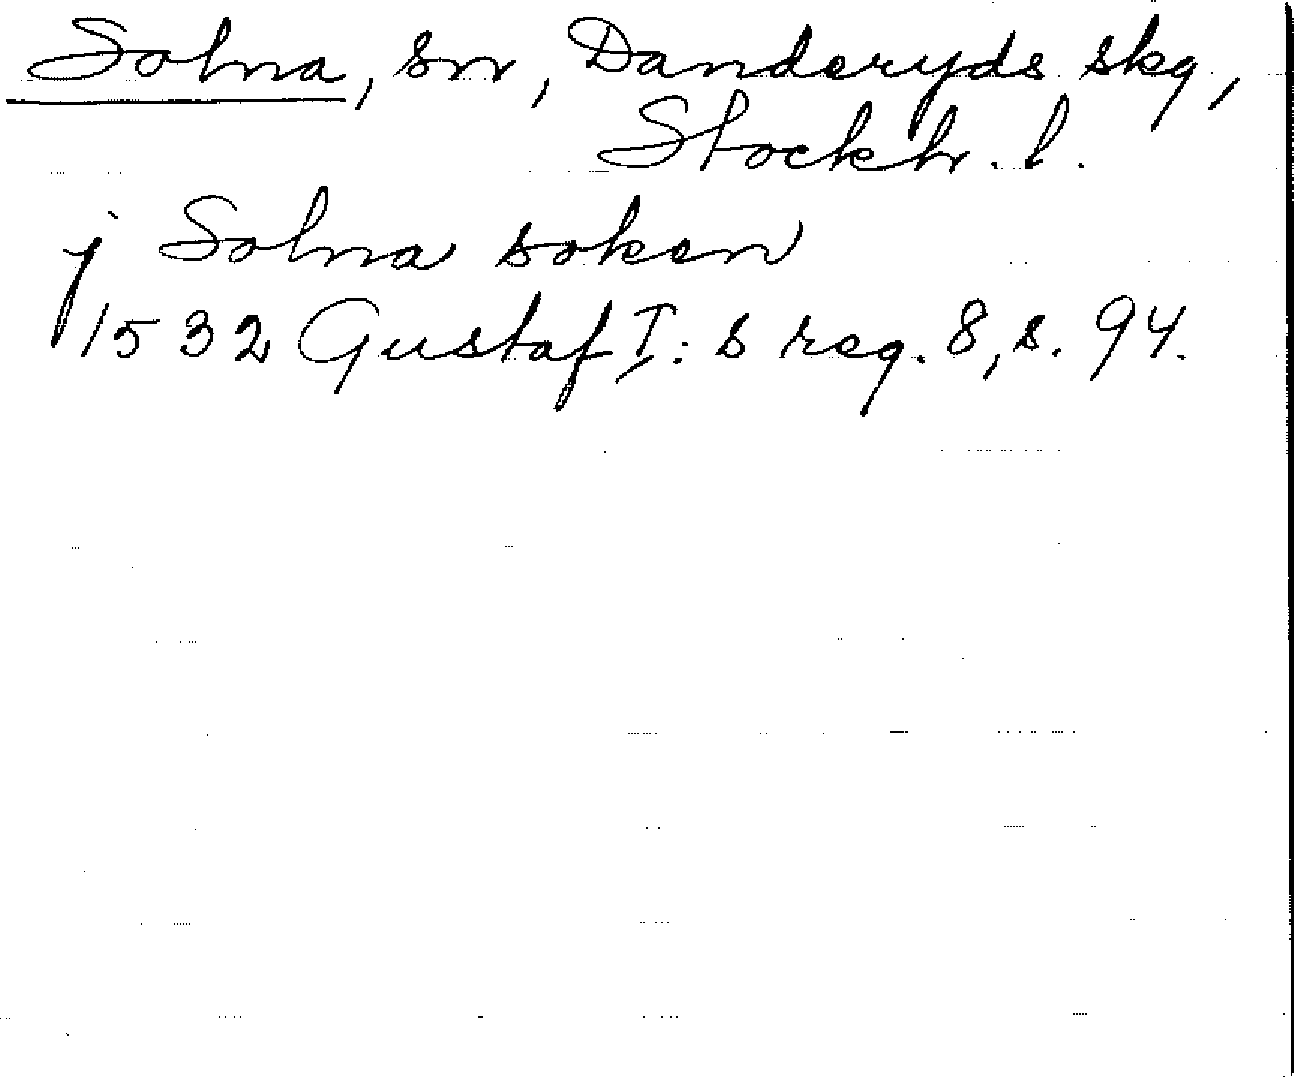 Solna, sn, Danderyds skg,
Stockh. l.
j Solna soken
1532 Gustaf I: s reg. 8, s. 94.